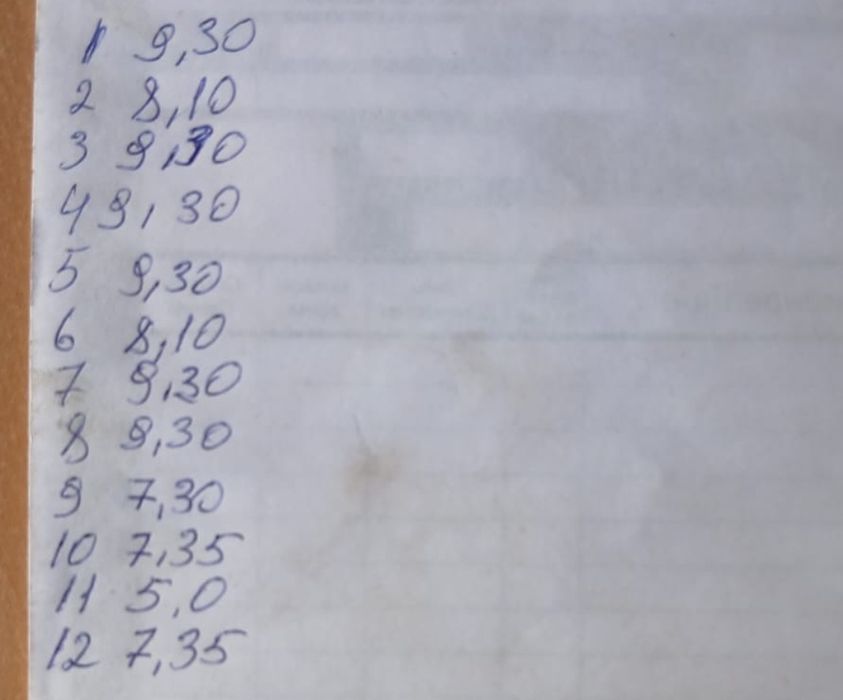 1 9,30
2 8,10
3 9,30
4 9,30
5 9,30
6 8,10
7 9,30
8 9,30
9 7,30
10 7,35
11 5,0
12 7,35